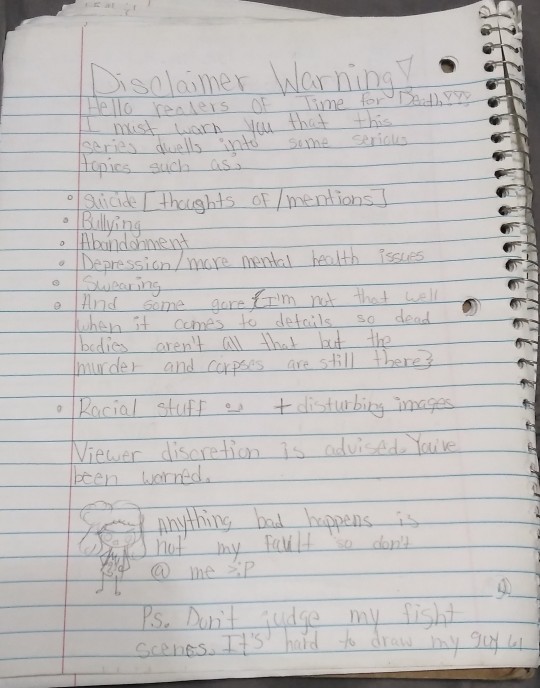 Disclaimer Warning!
Hello readers of Time for Death!!!
I must warn you that this
series dwells into some serious
topics such as,
• Suicide [thoughts of/mentions]
• Bullying
• Abandonment
• Depression/more mental health issues
• Swearing
• And some gore {I'm not that well
when it comes to details so dead
bodies aren't all that but the
murder and corpses are still there}
• Racial stuff + disturbing images
Viewer discretion is advised. You've
been warned.
Anything bad happens is
not my fault so don't
@ me >:P
P.s. Don't judge my fight
scenes. It's hard to draw my guy